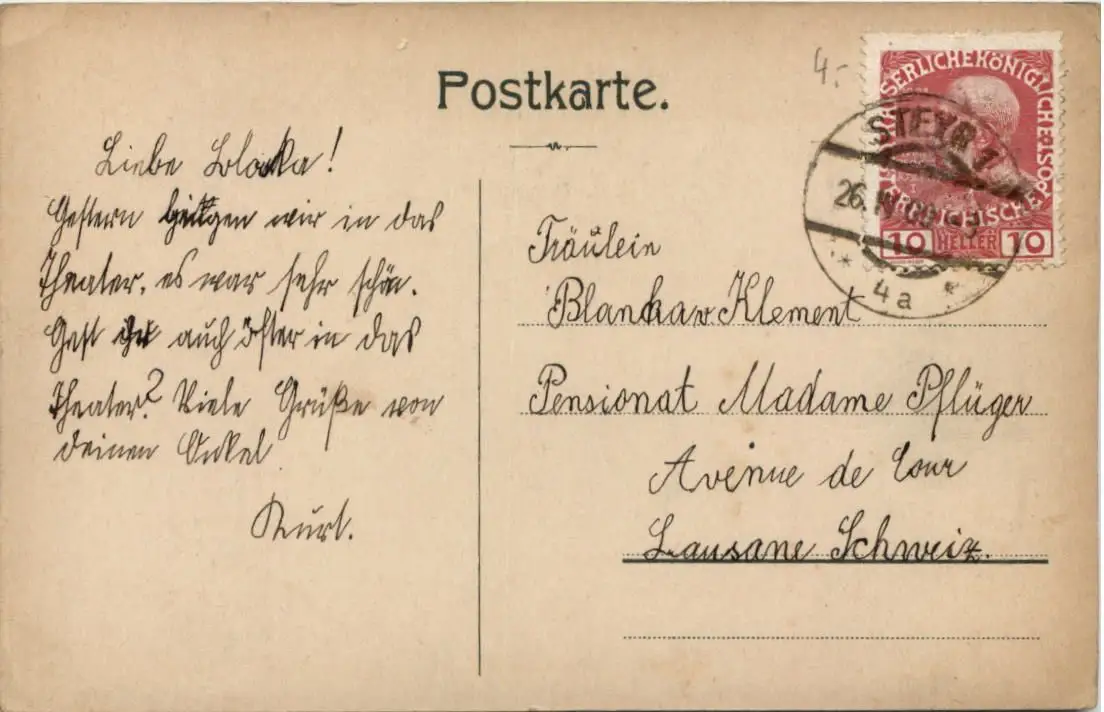 Postkarte.
4.-
KAISERLICHE KÖNIGLICHE ÖSTERREICHISCHE POST
10 HELLER 10
STEYR 1
26. 09
* 4a *
Liebe !
Gestern gingen wir in das
Theater, es war sehr schön.
Gest du auch öfter in das
Theater? Viele Grüße von
deinen Onkel
Kurt.
Fräulein
Blanka Klement
Pensionat Madame Pflüger
Avenue de Cour
Lausane Schweiz.